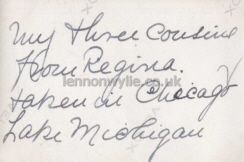 my three cousins
from Regina.
taken in Chicago
Lake Michigan
lennonwylie.co.uk